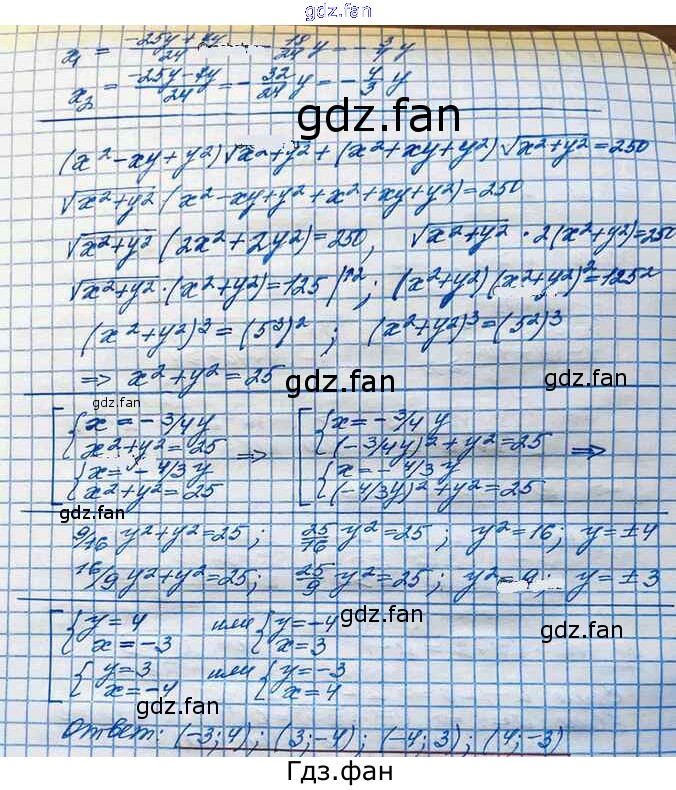 gdz.fan
x₁ = (-25y + 7y)/24 = - 18/24 y = - 3/4 y
x₂ = (-25y - 7y)/24 = - 32/24 y = - 4/3 y
gdz.fan
(x² - xy + y²) √x² + y² + (x² + xy + y²) √x² + y² = 250
√x² + y² (x² - xy + y² + x² + xy + y²) = 250
√x² + y² (2x² + 2y²) = 250, √x² + y² · 2(x² + y²) = 250
√x² + y² · (x² + y²) = 125 |↑2 ; (x² + y²)(x² + y²)² = 125²
(x² + y²)³ = (5³)² ; (x² + y²)³ = (5²)³
=> x² + y² = 25
gdz.fan
gdz.fan
gdz.fan
[ { x = - 3/4 y => [ { x = - 3/4 y
x² + y² = 25 (- 3/4 y)² + y² = 25 =>
{ x = - 4/3 y { x = - 4/3 y
x² + y² = 25 (- 4/3 y)² + y² = 25
gdz.fan
gdz.fan
9/16 y² + y² = 25; 25/16 y² = 25; y² = 16; y = ± 4
16/9 y² + y² = 25; 25/9 y² = 25; y² = 9; y = ± 3
gdz.fan
gdz.fan
[ { y = 4 или { y = -4
x = -3 x = 3
{ y = 3 или { y = -3
x = -4 x = 4
gdz.fan
Ответ: (-3; 4); (3; -4); (-4; 3); (4; -3)
Гдз.фан